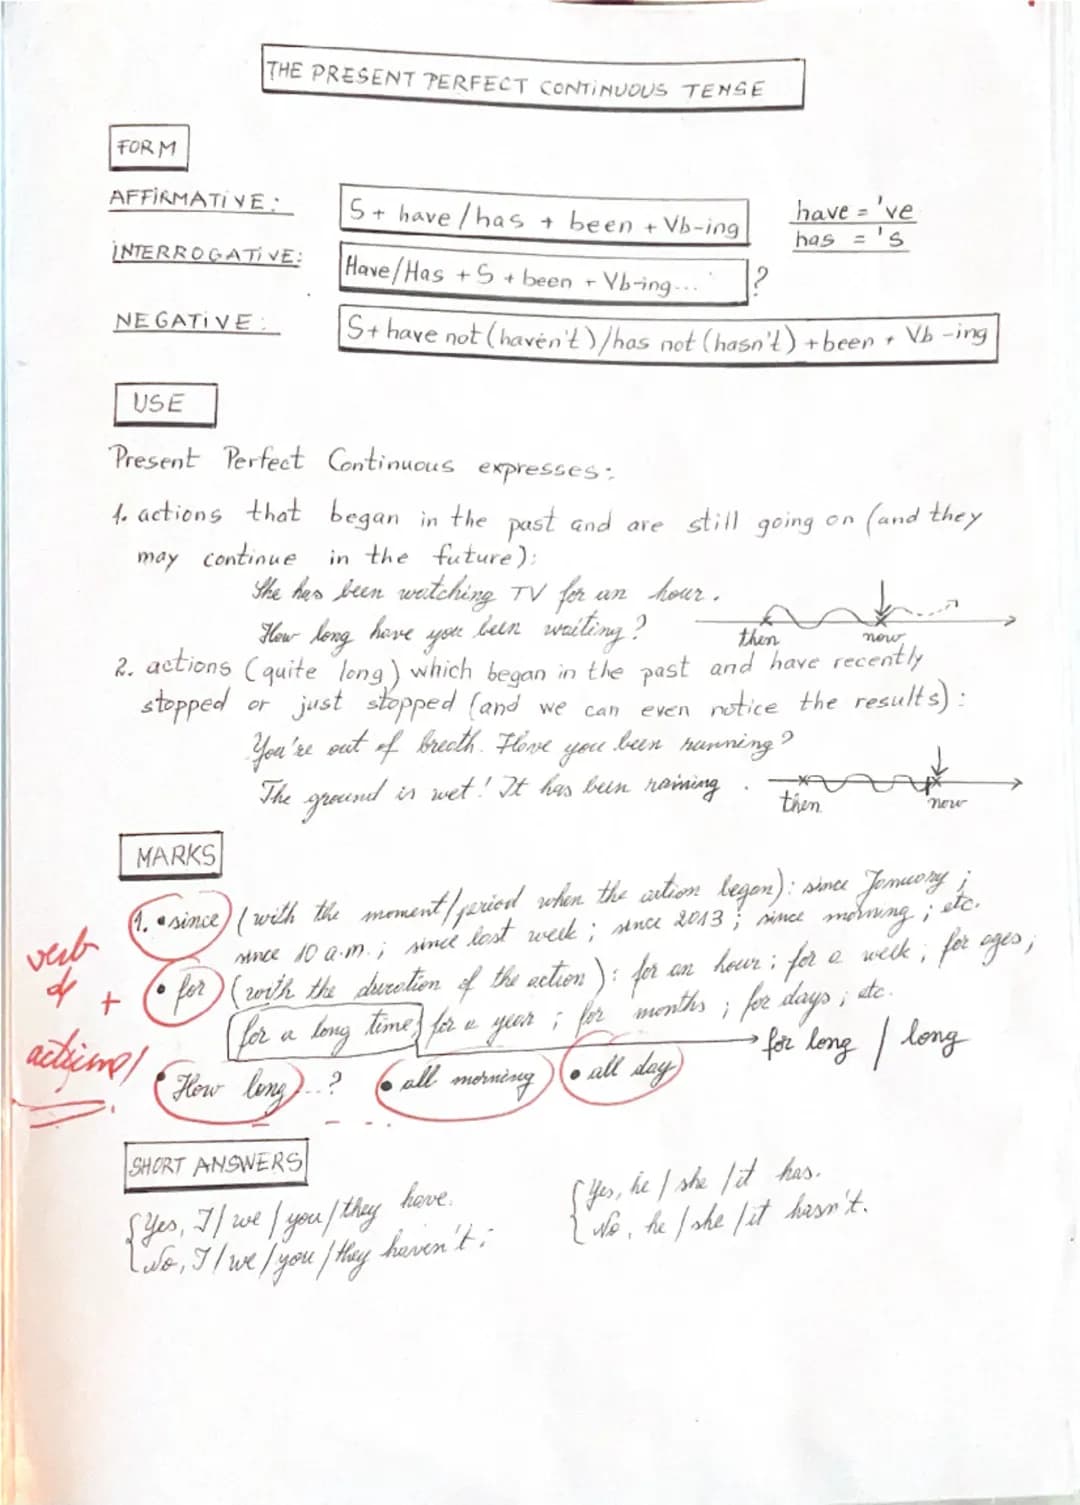 THE PRESENT PERFECT CONTINUOUS TENSE
FORM
AFFIRMATIVE: S + have / has + been + Vb-ing
have = 've
has = 's
INTERROGATIVE: Have/Has + S + been + Vb-ing... ?
NEGATIVE: S + have not (haven't) / has not (hasn't) + been + Vb -ing
USE
Present Perfect Continuous expresses:
1. actions that began in the past and are still going on (and they
may continue in the future):
She has been watching TV for an hour.
How long have you been waiting?
then now
2. actions (quite long) which began in the past and have recently
stopped or just stopped (and we can even notice the results):
You're out of breath. Have you been running?
The ground is wet! It has been raining.
then now
MARKS
1. • since (with the moment/period when the action began): since January;
since 10 a.m.; since last week; since 2013; since morning; etc.
verb
of + actions!
• for (with the duration of the action): for an hour; for a week; for ages;
for a long time; for a year; for months; for days; etc.
→ for long / long
• How long...? • all morning • all day
SHORT ANSWERS
{ Yes, I / we / you / they have.
{ No, I / we / you / they haven't;
{ Yes, he / she / it has.
{ No, he / she / it hasn't.